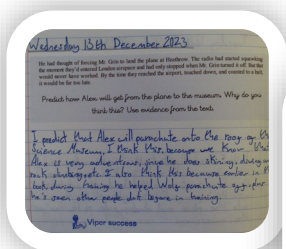 Wednesday 13th December 2023
He had thought of forcing Mr. Grin to land the plane at Heathrow. The radio had started squawking
the moment they'd entered London airspace and had only stopped when Mr. Grin turned it off. But that
would never have worked. By the time they reached the airport, touched down, and coasted to a halt,
it would be far too late.
Predict how Alex will get from the plane to the museum. Why do you
think this? Use evidence from the text.
I predict that Alex will parachute onto the roof of the
Science Museum, I think this because we know that
Alex is very adventurous, since he does skiing, diving and
rock climbing etc. I also think this because earlier in the
book, during training he helped Wolf parachute
he's seen other people do it before in training.
Viper success